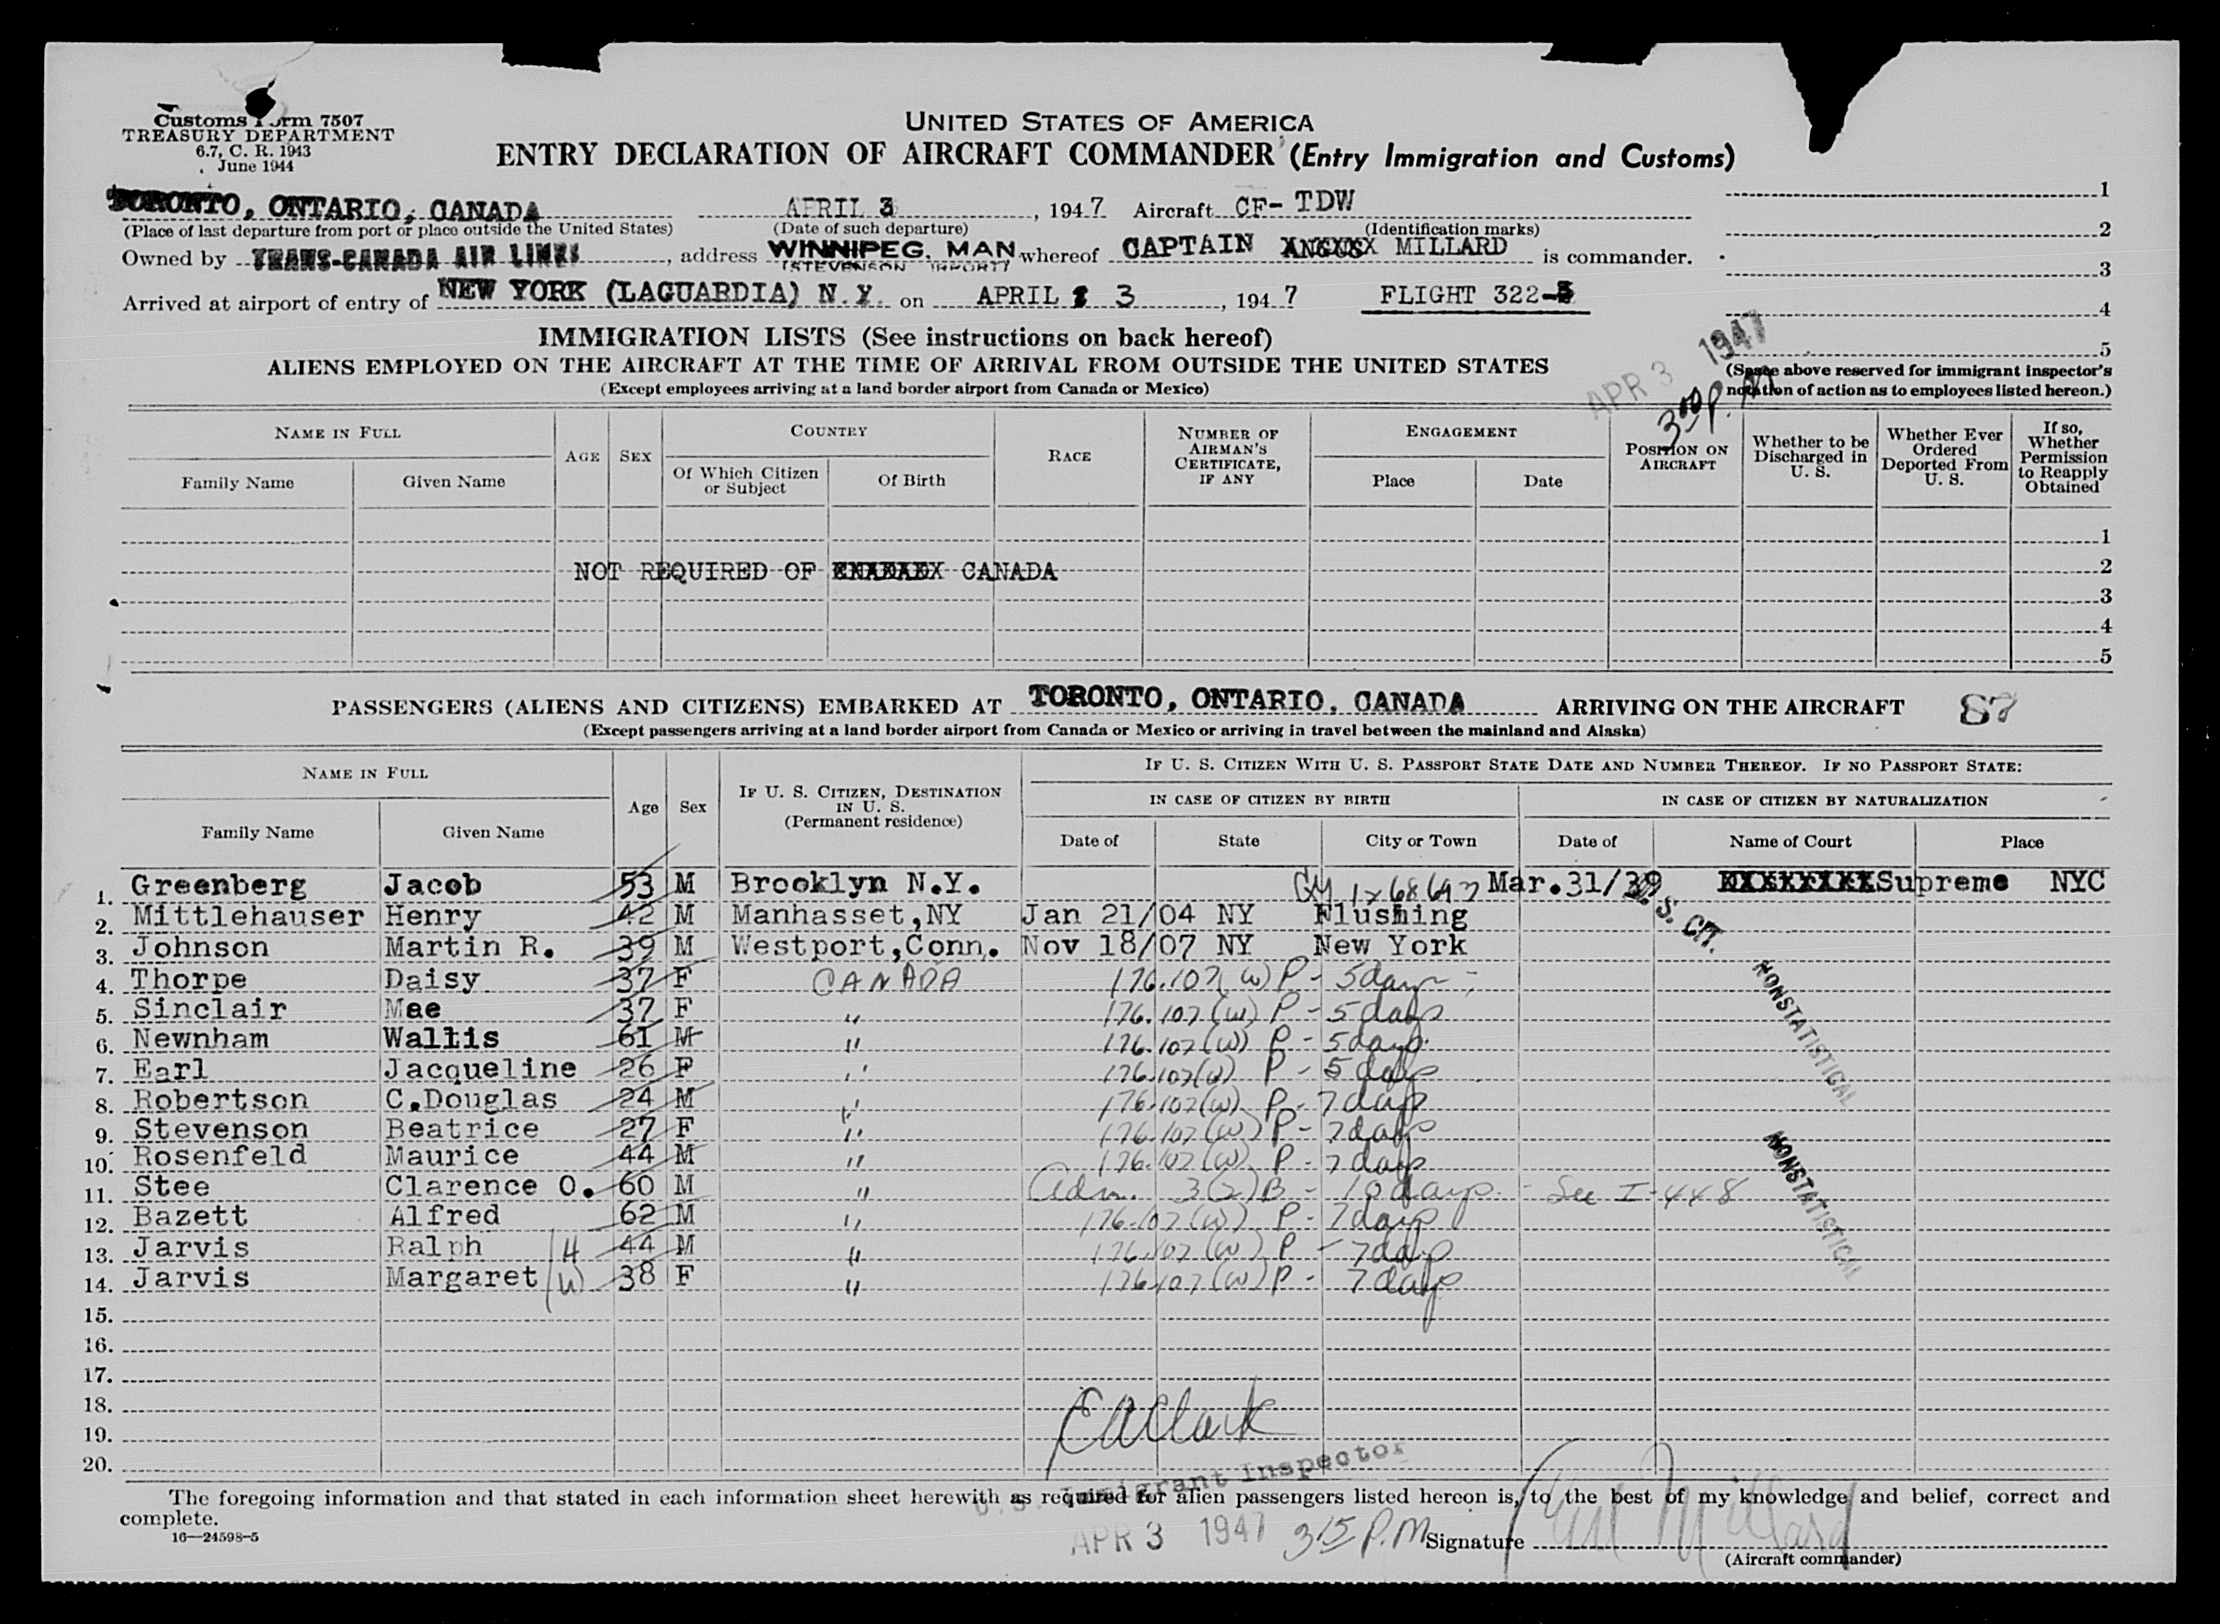 Customs Form 7507
TREASURY DEPARTMENT
6.7, C. R. 1943
June 1944
UNITED STATES OF AMERICA
ENTRY DECLARATION OF AIRCRAFT COMMANDER (Entry Immigration and Customs)
TORONTO, ONTARIO, CANADA APRIL 3, 1947 Aircraft CF-TDW
(Place of last departure from port or place outside the United States) (Date of such departure) (Identification marks)
Owned by TRANS-CANADA AIR LINES, address WINNIPEG, MAN whereof CAPTAIN MILLARD is commander.
(STEVENSON AIRPORT)
Arrived at airport of entry of NEW YORK (LAGUARDIA) N.Y. on APRIL 3, 1947 FLIGHT 322-
1
2
3
4
5
(Space above reserved for immigrant inspector's
notation of action as to employees listed hereon.)
APR 3 1947
3:00 P.M
IMMIGRATION LISTS (See instructions on back hereof)
ALIENS EMPLOYED ON THE AIRCRAFT AT THE TIME OF ARRIVAL FROM OUTSIDE THE UNITED STATES
(Except employees arriving at a land border airport from Canada or Mexico)
NAME IN FULL AGE SEX COUNTRY RACE NUMBER OF AIRMAN'S CERTIFICATE, IF ANY ENGAGEMENT POSITION ON AIRCRAFT Whether to be Discharged in U. S. Whether Ever Ordered Deported From U. S. If so, Whether Permission to Reapply Obtained
Family Name Given Name Of Which Citizen or Subject Of Birth Place Date
1
NOT REQUIRED OF CANADA 2
3
4
5
PASSENGERS (ALIENS AND CITIZENS) EMBARKED AT TORONTO, ONTARIO, CANADA ARRIVING ON THE AIRCRAFT 87
(Except passengers arriving at a land border airport from Canada or Mexico or arriving in travel between the mainland and Alaska)
NAME IN FULL Age Sex IF U. S. CITIZEN, DESTINATION IN U. S. (Permanent residence) IF U. S. CITIZEN WITH U. S. PASSPORT STATE DATE AND NUMBER THEREOF. IF NO PASSPORT STATE:
IN CASE OF CITIZEN BY BIRTH IN CASE OF CITIZEN BY NATURALIZATION
Family Name Given Name Date of State City or Town Date of Name of Court Place
1. Greenberg Jacob 53 M Brooklyn N.Y. Mar.31/39 Supreme NYC
2. Mittlehauser Henry 42 M Manhasset,NY Jan 21/04 NY Flushing
U. S. CIT.
3. Johnson Martin R. 39 M Westport,Conn. Nov 18/07 NY New York
4. Thorpe Daisy 37 F CANADA 176.107(w) P - 5 days -
5. Sinclair Mae 37 F " 176.107(w) P - 5 days
6. Newnham Wallis 61 M " 176.107(w) P - 5 days
NONSTATISTICAL
7. Earl Jacqueline 26 F " 176.107(w) P - 5 days
8. Robertson C.Douglas 24 M " 176.107(w) P - 7 days
9. Stevenson Beatrice 27 F " 176.107(w) P - 7 days
10. Rosenfeld Maurice 44 M " 176.107(w) P - 7 days
11. Stee Clarence O. 60 M " Adm. 3(2)B - 10 days - See I-448
NONSTATISTICAL
12. Bazett Alfred 62 M " 176.107(w) P - 7 days
13. Jarvis Ralph (H 44 M " 176.107(w) P - 7 days
14. Jarvis Margaret (W) 38 F " 176.107(w) P - 7 days
15.
16.
17.
18.
19.
20.
E A Clark
U. S. Immigrant Inspector
The foregoing information and that stated in each information sheet herewith as required for alien passengers listed hereon is, to the best of my knowledge and belief, correct and
complete.
16—24598-5
APR 3 1947 315 P.M
Signature Millard
(Aircraft commander)